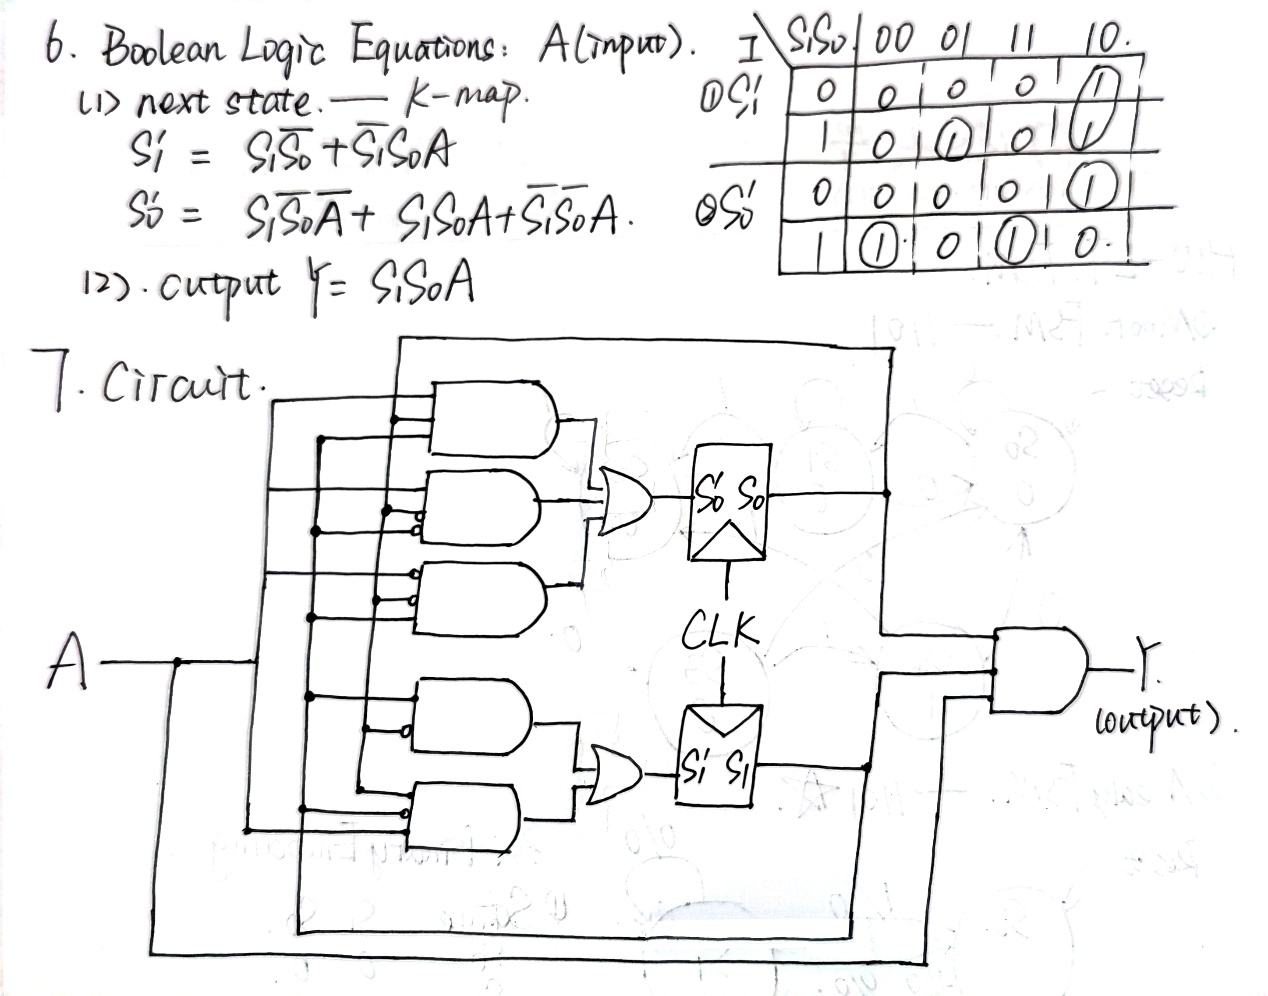 6. Boolean Logic Equations: A(input).
(1) next state. — K-map.
S₁' = S₁S̅₀ + S̅₁S₀A
S₀' = S₁S̅₀A̅ + S₁S₀A + S̅₁S̅₀A.
(2). output Y = S₁S₀A
I \ S₁S₀ 00 01 11 10.
①S₁' 0 0 0 0 1
1 0 1 0 1
②S₀' 0 0 0 0 1
1 1 0 1 0.
7. Circuit.
S₀' S₀
CLK
A
Y.
(output).
S₁' S₁